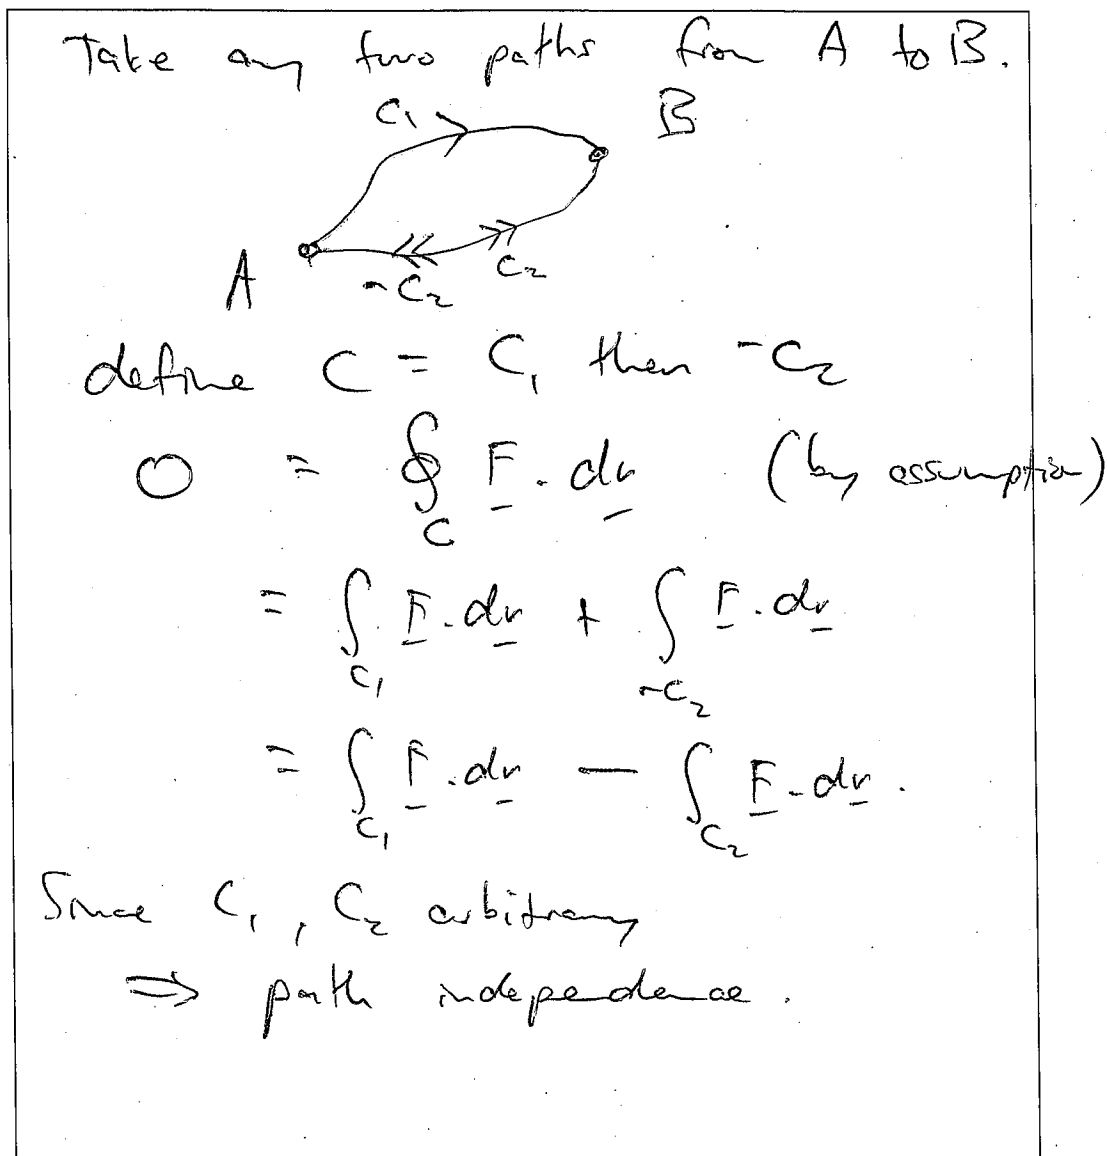 Take any two paths from A to B.
C₁ B
A -C₂ C₂
define C = C₁ then -C₂
0 = ∮_C F̲ . dr̲ (by assumption)
= ∫_C₁ F̲ . dr̲ + ∫_-C₂ F̲ . dr̲
= ∫_C₁ F̲ . dr̲ - ∫_C₂ F̲ . dr̲ .
Since C₁, C₂ arbitrary
⇒ path independence.